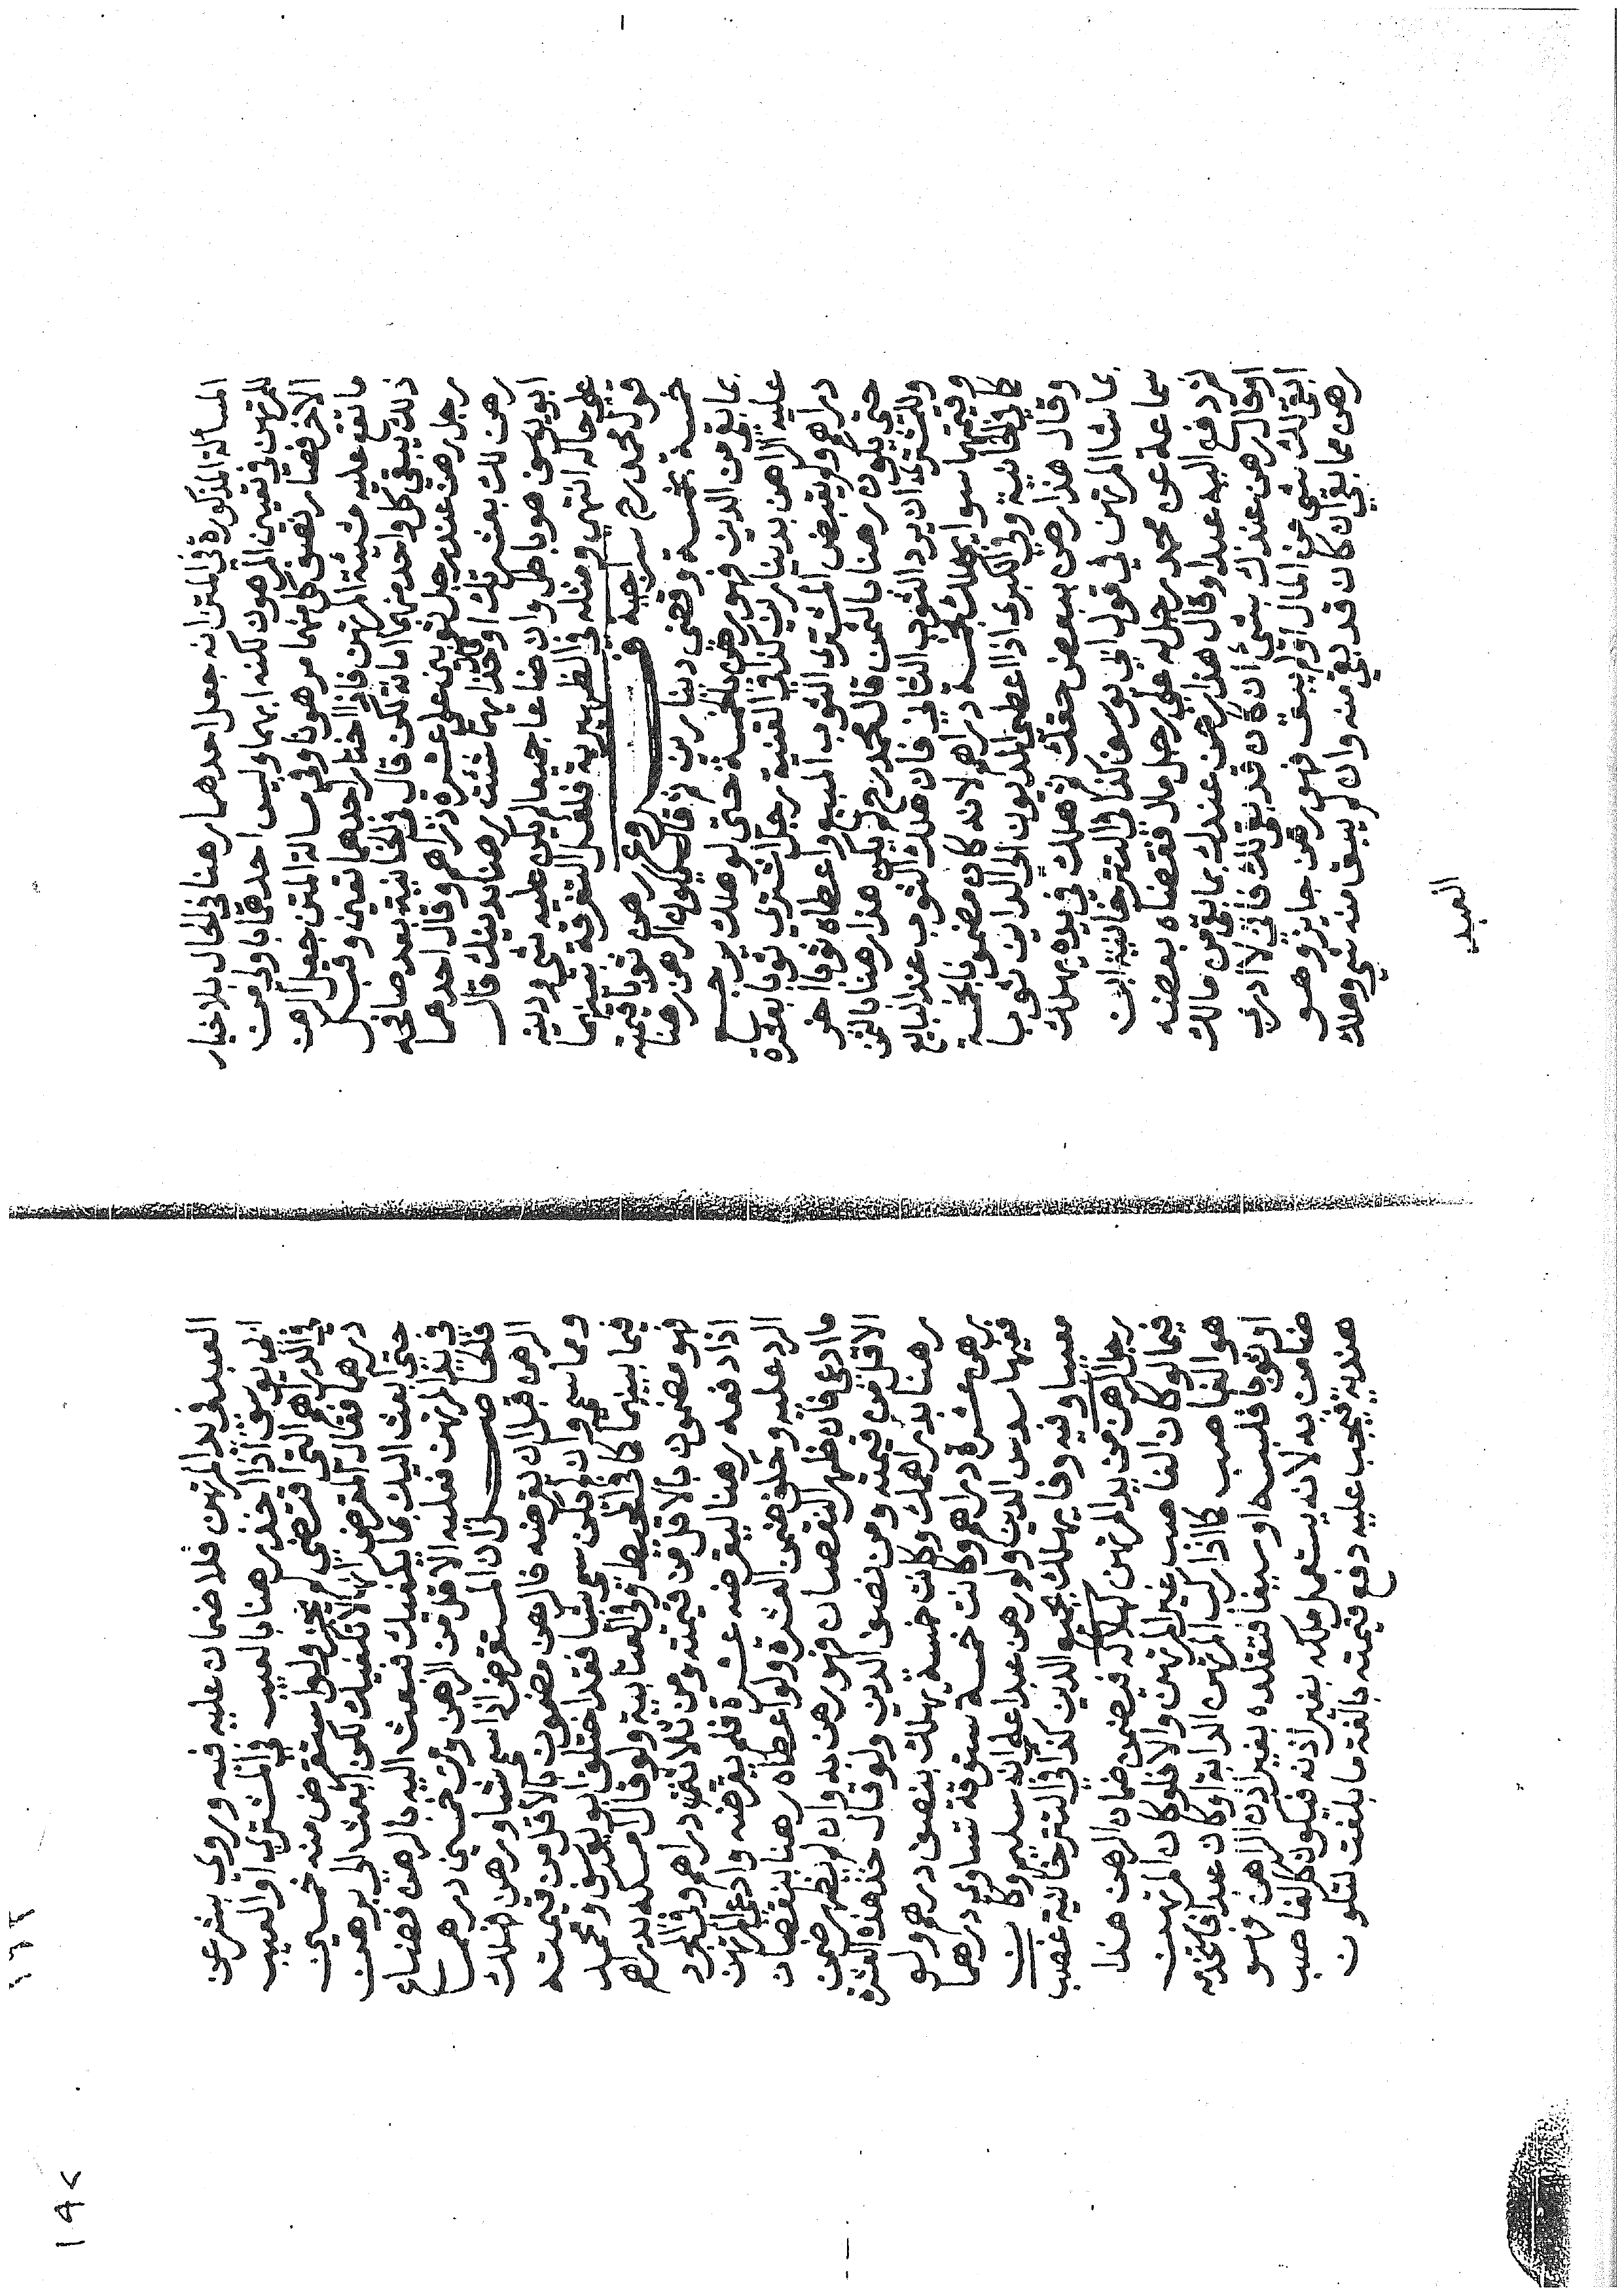 المسألة المذكورة في المتن انه جعل احدهما رهنا في الحال بلا خيار
للمرتهن في تعيين المرهون لكنه ابهما وليس احدهما باولى من
الاخر فصار نصف كل منهما مرهونا وفي مسالة المتن جعل الرهن
ما تقع عليه مشيئة المرتهن فاذا اختار احدهما تعين وقبل
ذلك يبقى كل واحد منهما امانة لكن قال في الخانية بعد صافحه
رجل رهن عند رجل ثوبين على عشرة دراهم وقال احدهما
رهن لك بعشرتك او خذ ايهما شئت رهنا بدينك قال
ابو يوسف هو باطل وان ضاعا جميعا لم يكن عليه شي ودينه
على حاله انتهى ومثله في الظهيرية فلعل التفرقة بينهما
قول محمد رح سراجيه فروع رهن ثوبا قيمته
خمسة بخمسة وقضى دينارين ثم قال يكون الرهن رهنا
بما بقي من الدين فهو رهن بالخمسة حتى لو هلك يرجع
عليه الراهن بدينارين كذا في القنية رجل اشترى ثوبا بعشرة
دراهم ولم يقبض المشتري الثوب المبيع واعطاه ثوبا اخر
حتى يكون رهنا بالثمن قال محمد رح لم يكن هذا رهنا بالثمن
وللمشتري ان يرد الثوب الثاني فان هلك الثوب عند البايع
وقيمتهما سوا يهلك بخمسة دراهم لانه كان مضمونا بخمسة
كما في الخانية وفي الكبرى اذا اعطى المديون الى الداين ثوبا
وقال هذا رهن ببعض حقك ثم هلك في يده يهلك
بما شا المرتهن في قول ابي يوسف كذا في التترخانية ابن
سماعة عن محمد رجل له على رجل مال فقضاه بعضه
ثم دفع اليه عبدا وقال هذا رهن عندك بما بقي من مالك
او قال رهن عندك بشي ان كان قد بقي لك فاني لا ادري
ابقي لك شي من المال او لم يبق فهو رهن جايز وهو
رهن مما بقي ان كان قد بقي منه وان لم يبق منه شي وهلك
العبد
العبد في يد المرتهن فلا ضمان عليه فيه وروى بشر عن
ابي يوسف اذا اخذ رهنا بالعيب في المشتري او العيب
في الدراهم التي اقتضى لم يجز ولو استقرض منه خمسين
درهما فقال المقرض انها لا تكفيك لكن ابعث الي برهن
حتى ابعث اليك بما يكفيك فبعث اليه بالرهن فضاع
في يد المرتهن فعليه الاقل من الرهن ومن خمسين درهما
فالحاصل ان المستقرض اذا سمى شيا ورهن فهلك
الرهن قبل ان يقرضه فالرهن مضمون بالاقل من قيمته
ومما سمى وان لم يكن سمى شيا فقد اختلف ابو يوسف ومحمد
فيما بينهما كما في المحيط وفي العتابية ولو قال امسكه بدراهم
فهو مضمون بالاقل من قيمته ومن ثلاثة دراهم وفي المجرد
اذا دفعه رهنا ليقرضه عشرة فلم يقرضه وادعى المرتهن
الرد عليه وحلف ضمن العشرة ولو اعطاه رهنا بنقصان
ما ادعى فان ظهر النقصان فهو رهن به وان لم يظهر ضمن
الاقل من قيمته ومن نصف الدين ولو قال خذ هذه العشرة
رهنا بدراهمك وكانت خمسة يهلك بنصف درهم ولو
رهن عشرة دراهم وكانت خمسة ستوقة تساوي درهما
ففيها سدس الدين ولو رهن عبدا على انه سليم وكان
معيبا وفيه وفا يهلك بجميع الدين كذا في التترخانية غصب
رجل الرهن من يد المرتهن كهلاكه فيضمن ضمان الرهن هذا
فيما لو كان الغاصب غير المرتهن والا فلو كان المرتهن
هو الغاصب كما اذا ركب المرتهن الدابة او كان عبدا فاستخدمه
او ثوبا فلبسه او سيفا فتقلده بغير اذن الراهن فهو
ضامن به لانه يستعمل ملكه بغير اذنه فيكون كالغاصب
هنديه فيجب عليه دفع قيمته بالغة ما بلغت لتكون
١٩٨